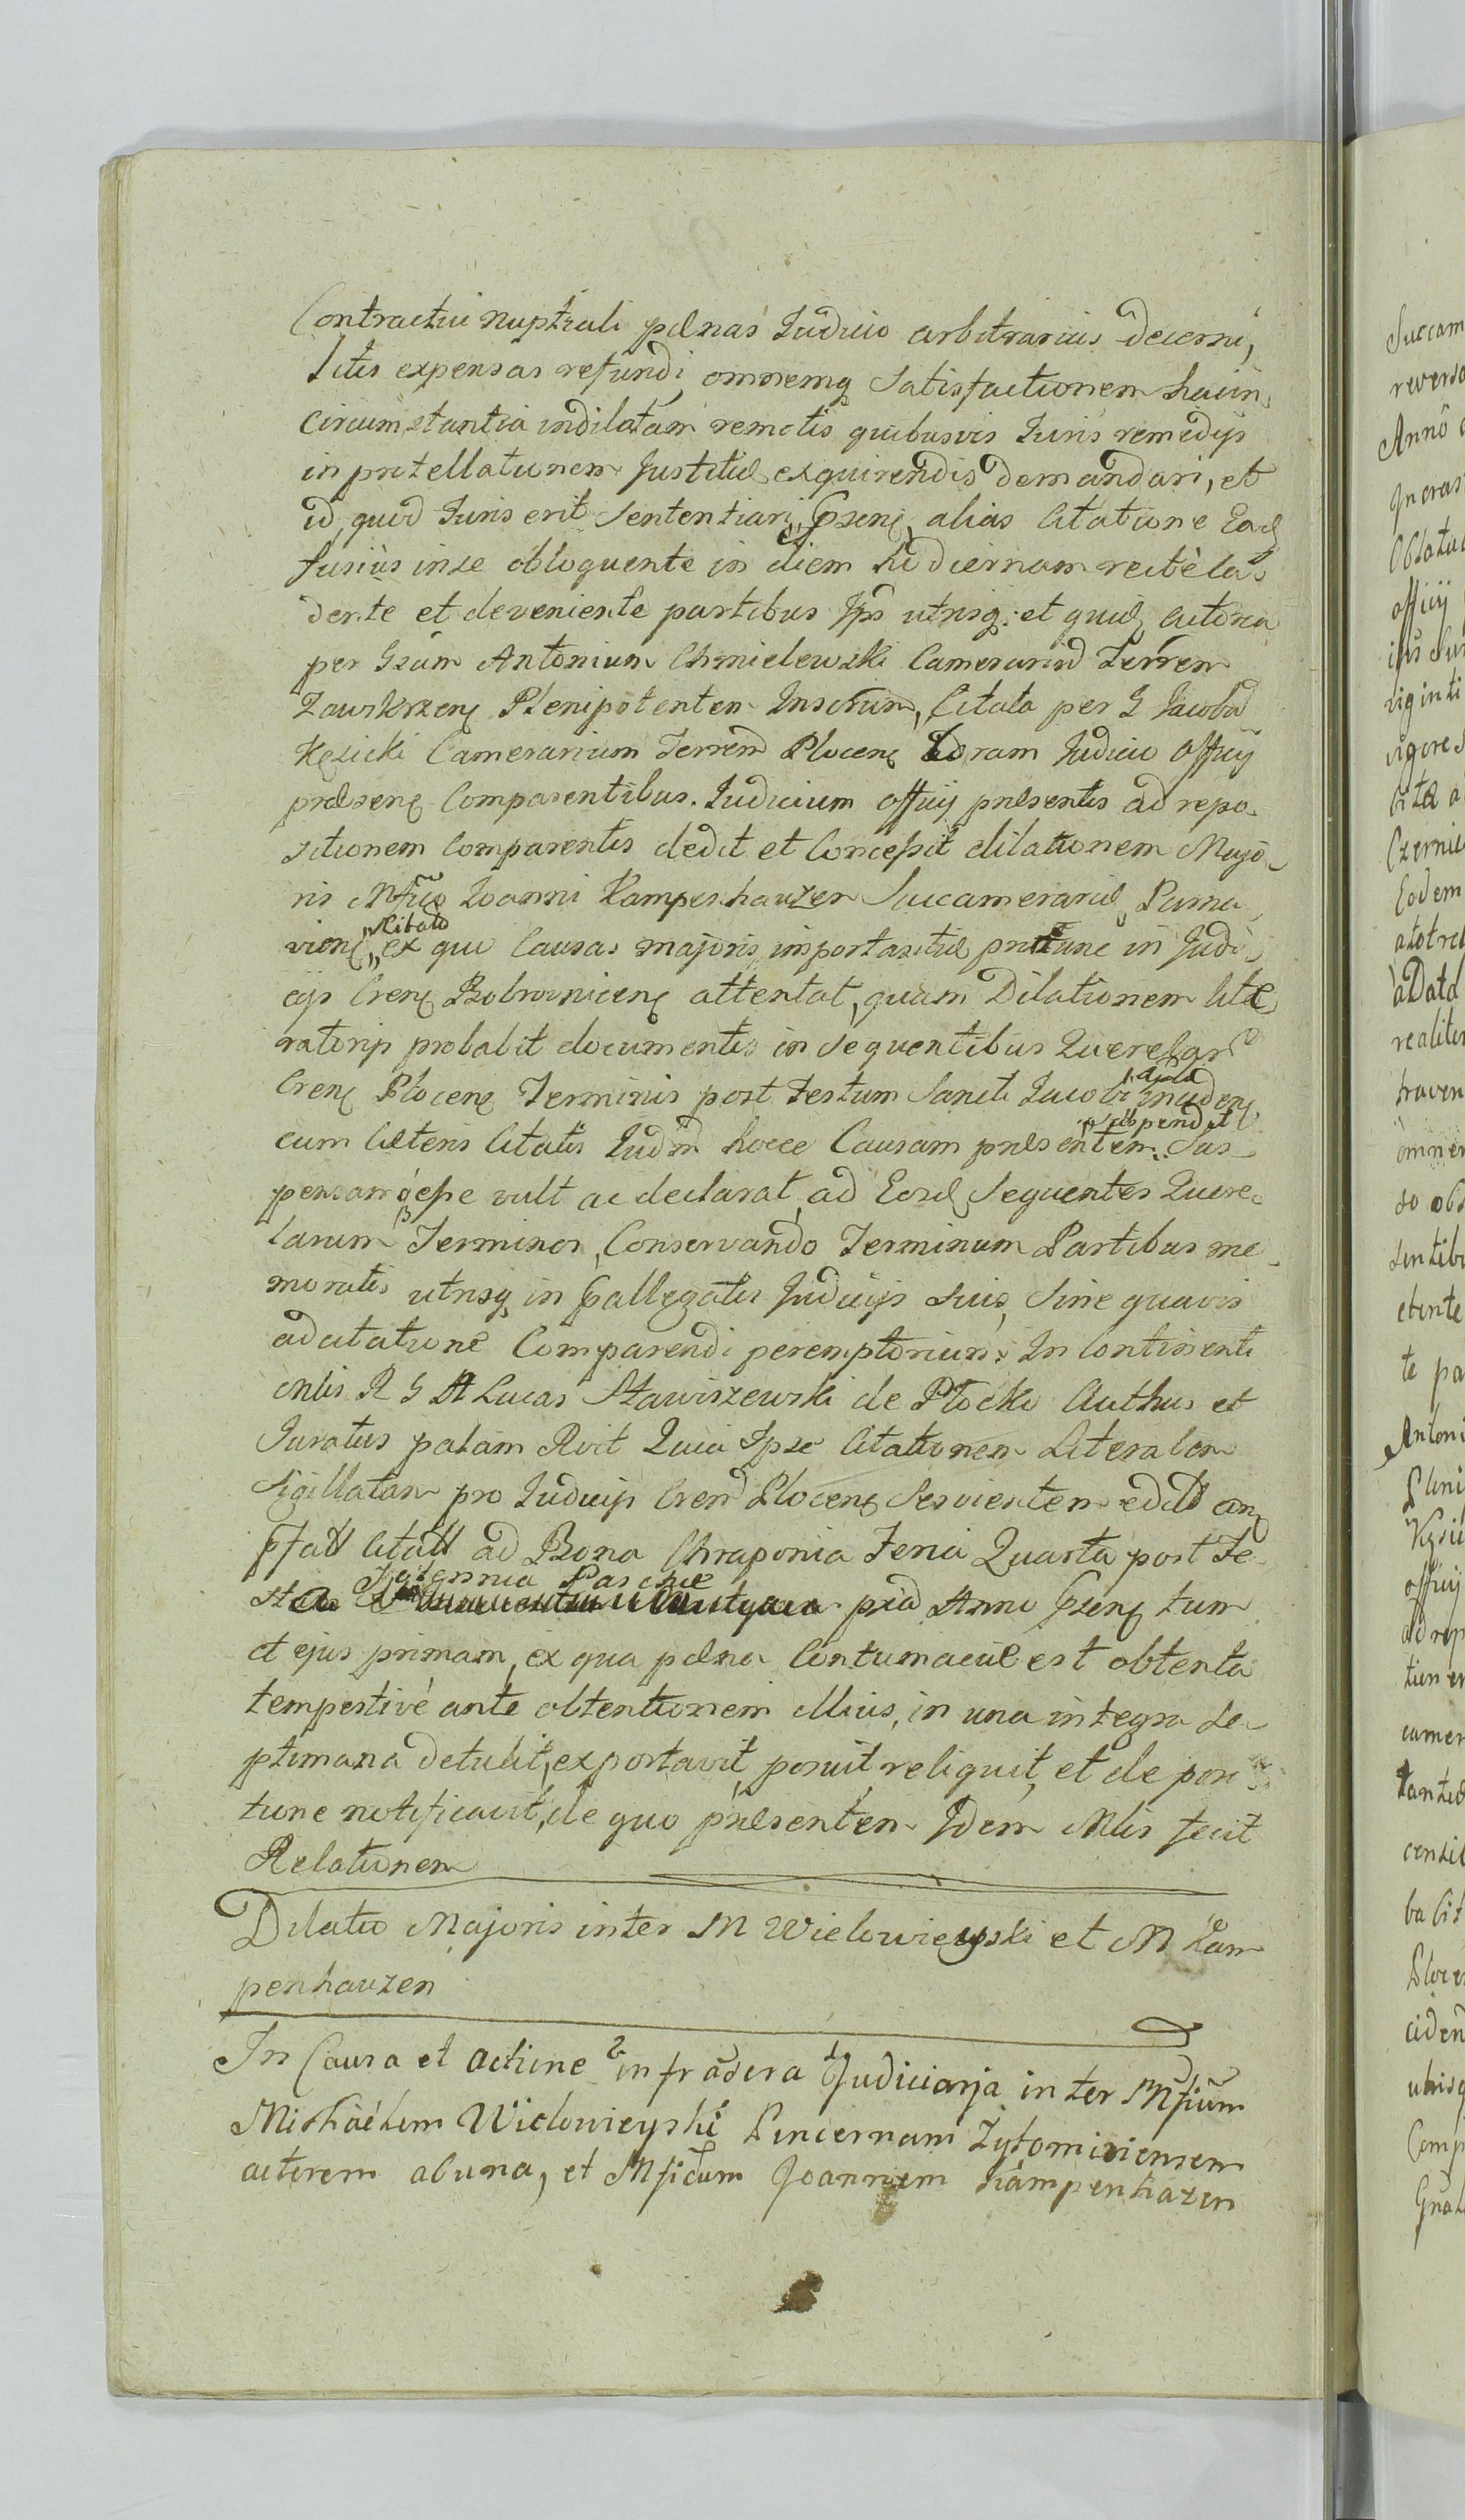 Contractui nuptiali pænas Judicio arbitrarias decerni,
litis expensas refundi, omnemq satisfactionem hac in
circumstantia indilatam remotis quibusvis Juris remedys
in protellationem Justitiæ exquirendis demandari, et
id, quid Juris erit sententiari, alias Citatione Ead
fusius in se obloquente in diem hodiernam rectè ca
dente et deveniente partibus Ips utrisq. et quid actorea
per Gsum Antonium Chmielewski Camerarium Terren
Zawkrzen Plenipotenten Inscrum, Citata per G Jacobu
Kęsicki Camerarium Terren Plocens Coram Judicio Officy
præsens Comparentibus. Judicium officy præsentis ad repo
sitionem Comparentis dedit et Concessit dilationem Majo
ris Mfico Joanni Kampenhauzen Succamerario Parna
viens, Citato ex quo Causas majoris importantiæ pro tunc in Judi
cys Crens Bobrownicens attentat, quam Dilationem lite
ratorys probabit documentis in sequentibus Querelar
Crens Plocens Terminis post Festum Sancti Jacobi inciden
suspendit
cum Cæteris Citatis Judm hocce Causam præsentem Sus
pensam esse vult ac declarat, ad Eosd Sequentes Quere
larum Terminos, Conservando Terminum Partibus me
moratis utrisq in allegatis Judicys suis, sine quavis
adcitatione Comparendi peremptorium. In Continenti
Mlis R G A Lucas Stawiszewski de Płocko Authus et
Juratus palam Rvit Quia Ipse Citationem Literalem
Sigillatam pro Judicys Cren Plocens Servientem
Citatt ad Bona Chraponia Feria Quarta post Fe
Solennia Paschæ
sta Anni tum
et ejus primam, ex qua pæna Contumaciæ est obtenta
tempestivè ante obtentionem illius, in una integra se
ptimana detulit, exportavit, posuit, reliquit, et de posi
tione notificavit, de quo præsentem Idem Mlis fecit
Relationem
Dilatio Majoris inter M Wielowieyski et M Kam
penhauzen
In Causa et actione infrascra Judiciaria inter Mficum
Michaelem Wielowieyski Pincernam Zytomiriensem
actorem ab una, et Mficum Joannem Kampenhazen